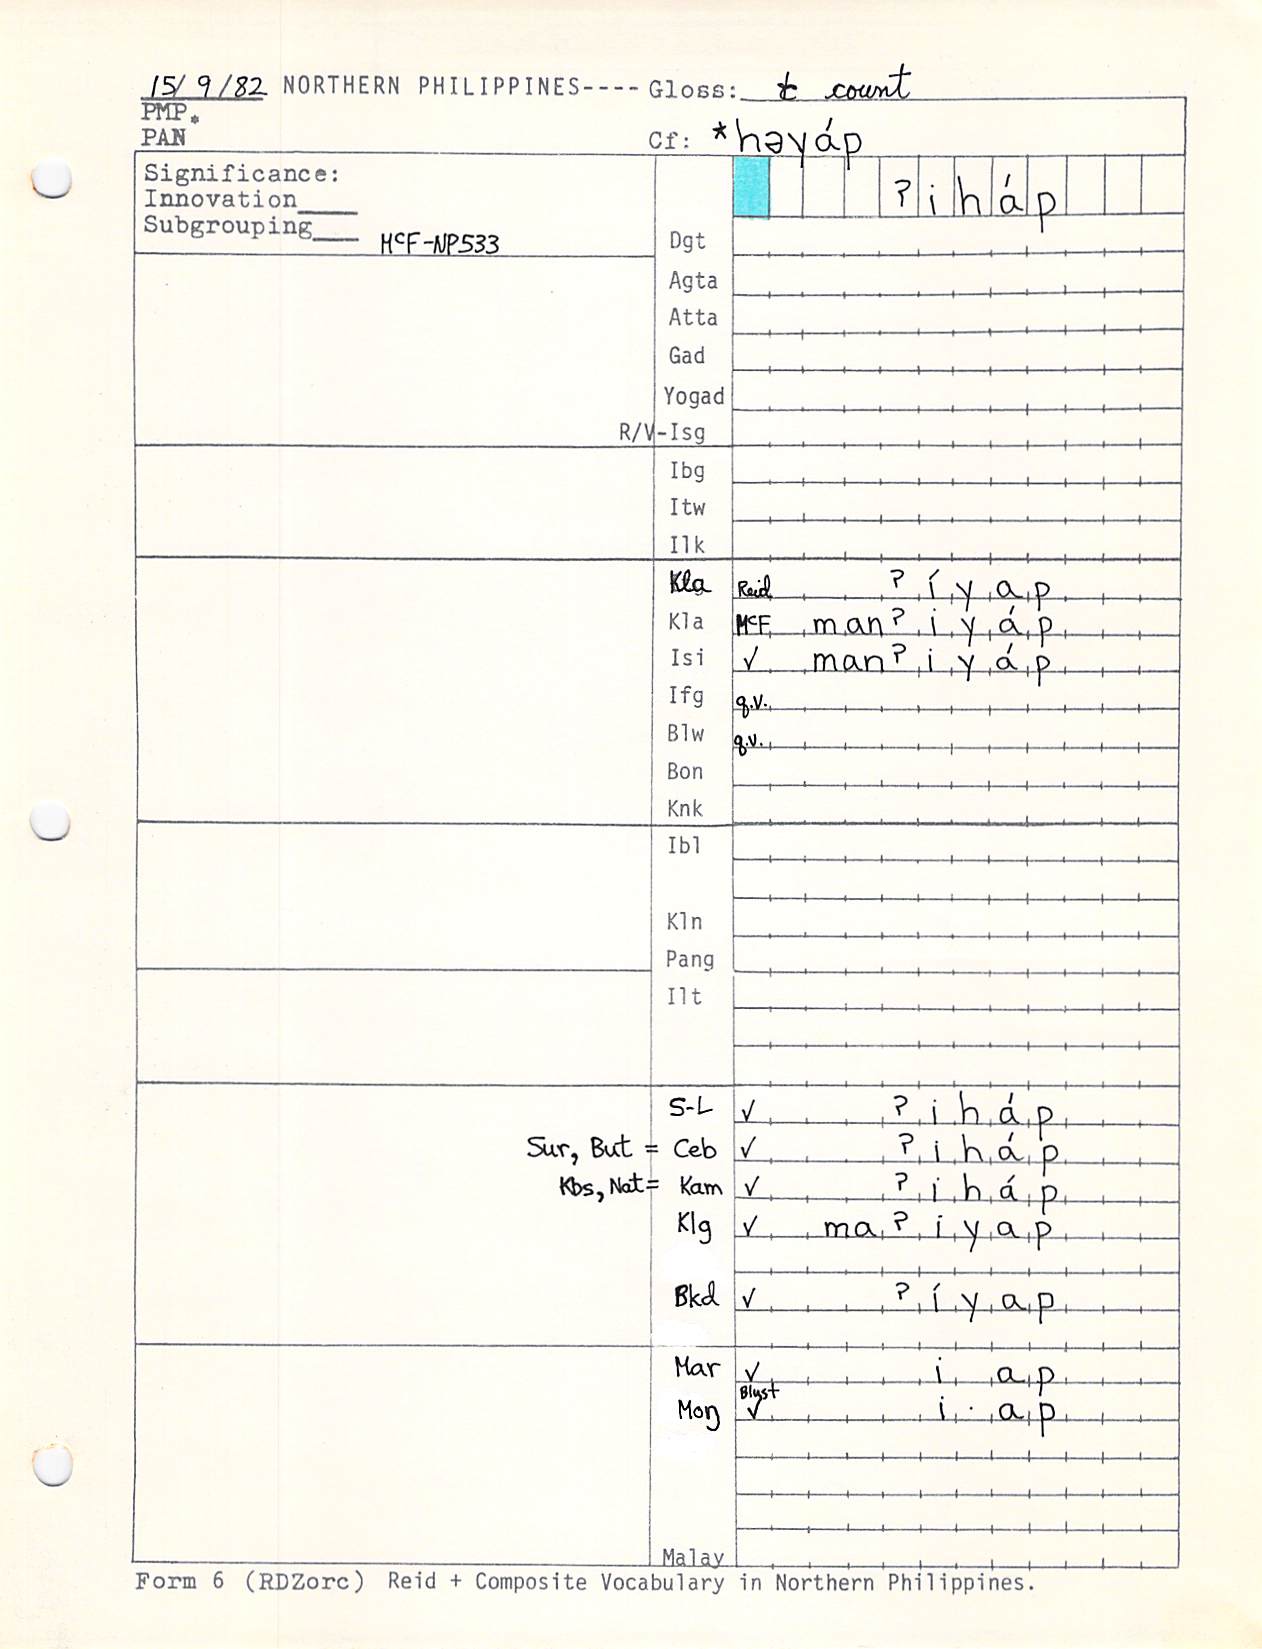 15/9/82 NORTHERN PHILIPPINES---- Gloss: to count
PMP.
PAN Cf: *həyáp
Significance:
Innovation____
Subgrouping___ McF-NP533
ʔiháp
Dgt
Agta
Atta
Gad
Yogad
R/V-Isg
Ibg
Itw
Ilk
Kla Reid ʔíyap
Kla McF manʔiyáp
Isi ✓ manʔiyáp
Ifg q.v.
Blw q.v.
Bon
Knk
Ibl
Kln
Pang
Ilt
S-L ✓ ʔiháp
Sur, But = Ceb ✓ ʔiháp
Kbs, Nat = Kam ✓ ʔiháp
Klg ✓ maʔiyap
Bkd ✓ ʔíyap
Mar ✓ i ap
Blust
Moŋ ✓ i·ap
Malay
Form 6 (RDZorc) Reid + Composite Vocabulary in Northern Philippines.